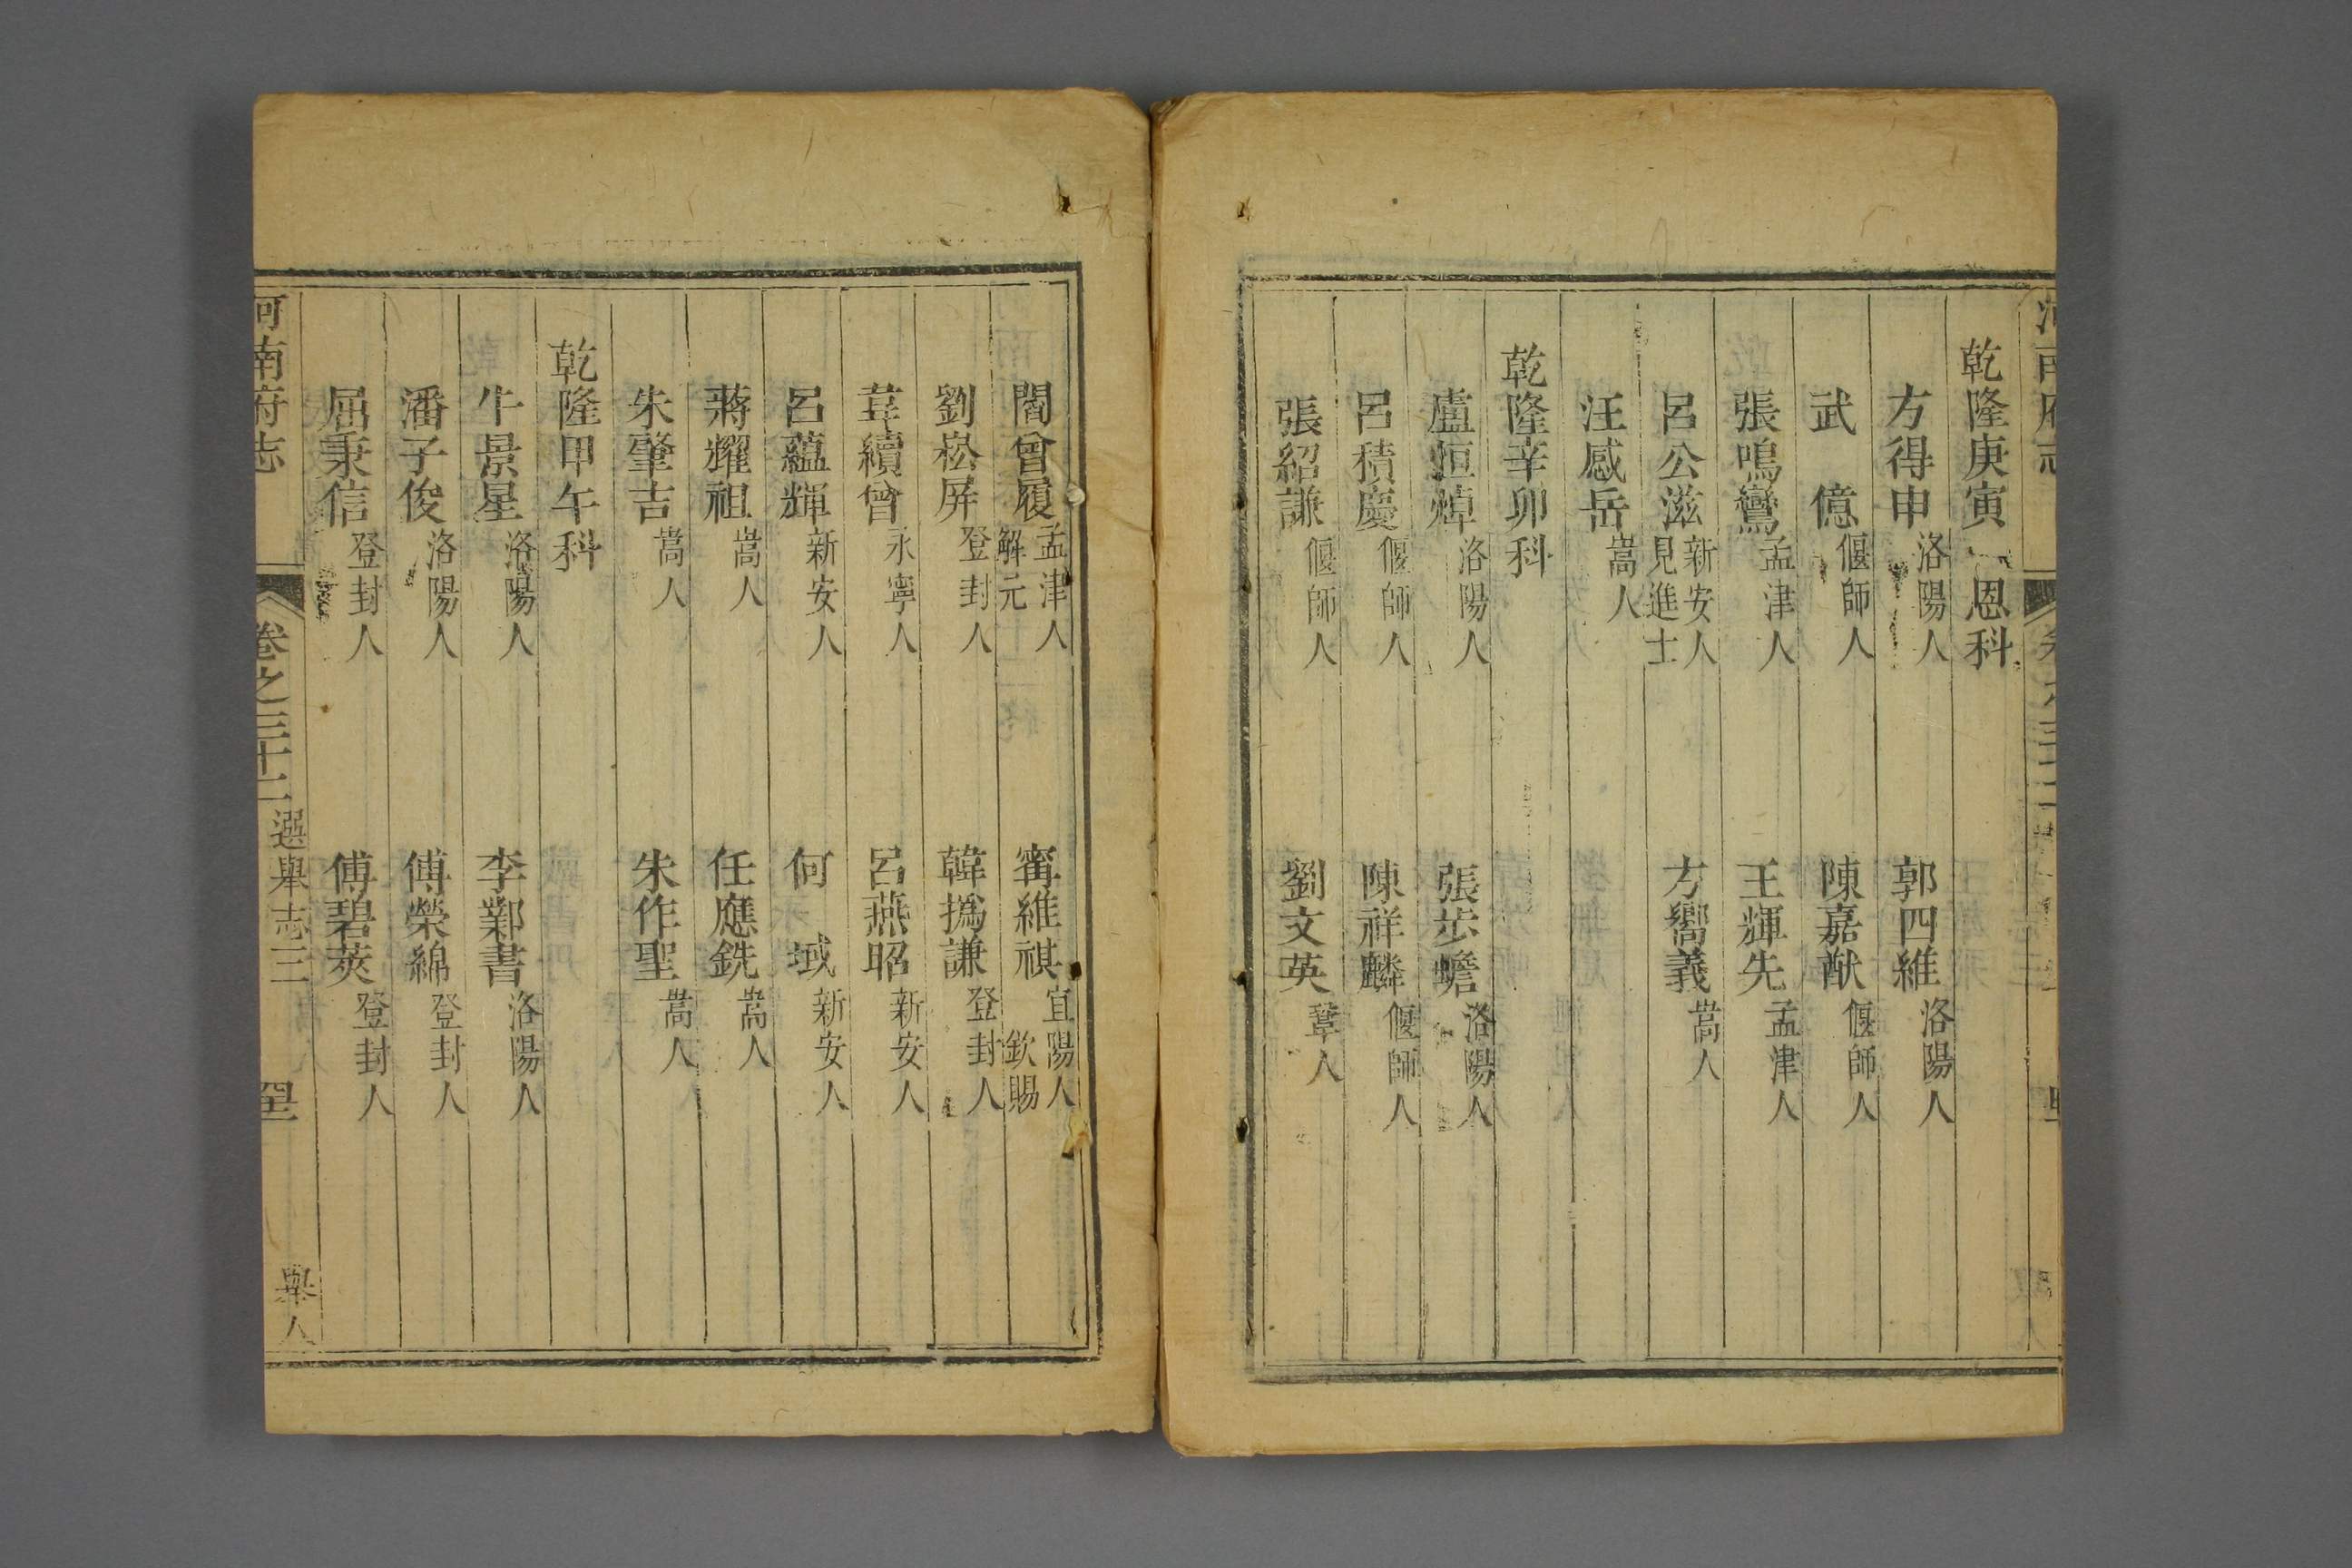 乾隆庚寅 恩科
方得申洛陽人 郭四維洛陽人
武 億偃師人 陳嘉猷偃師人
張鳴鸞孟津人 王輝先孟津人
呂公滋新安人見進士 方嚮義嵩人
汪感岳嵩人
乾隆辛卯科
盧恒焯洛陽人 張步蟾洛陽人
呂積慶偃師人 陳祥麟偃師人
張紹謙偃師人 劉文英鞏人
閻曾履孟津人解元 甯維祺宜陽人欽賜
劉崧屏登封人 韓撝謙登封人
葦續曾永寧人 呂燕昭新安人
呂蘊輝新安人 何 域新安人
蔣耀祖嵩人 任應銑嵩人
朱肇吉嵩人 朱作聖嵩人
乾隆甲午科
牛景星洛陽人 李鄴書洛陽人
潘子俊洛陽人 傅榮綿登封人
屈秉信登封人 傅碧莢登封人
河南府志 卷之三十二 選舉志三 舉人